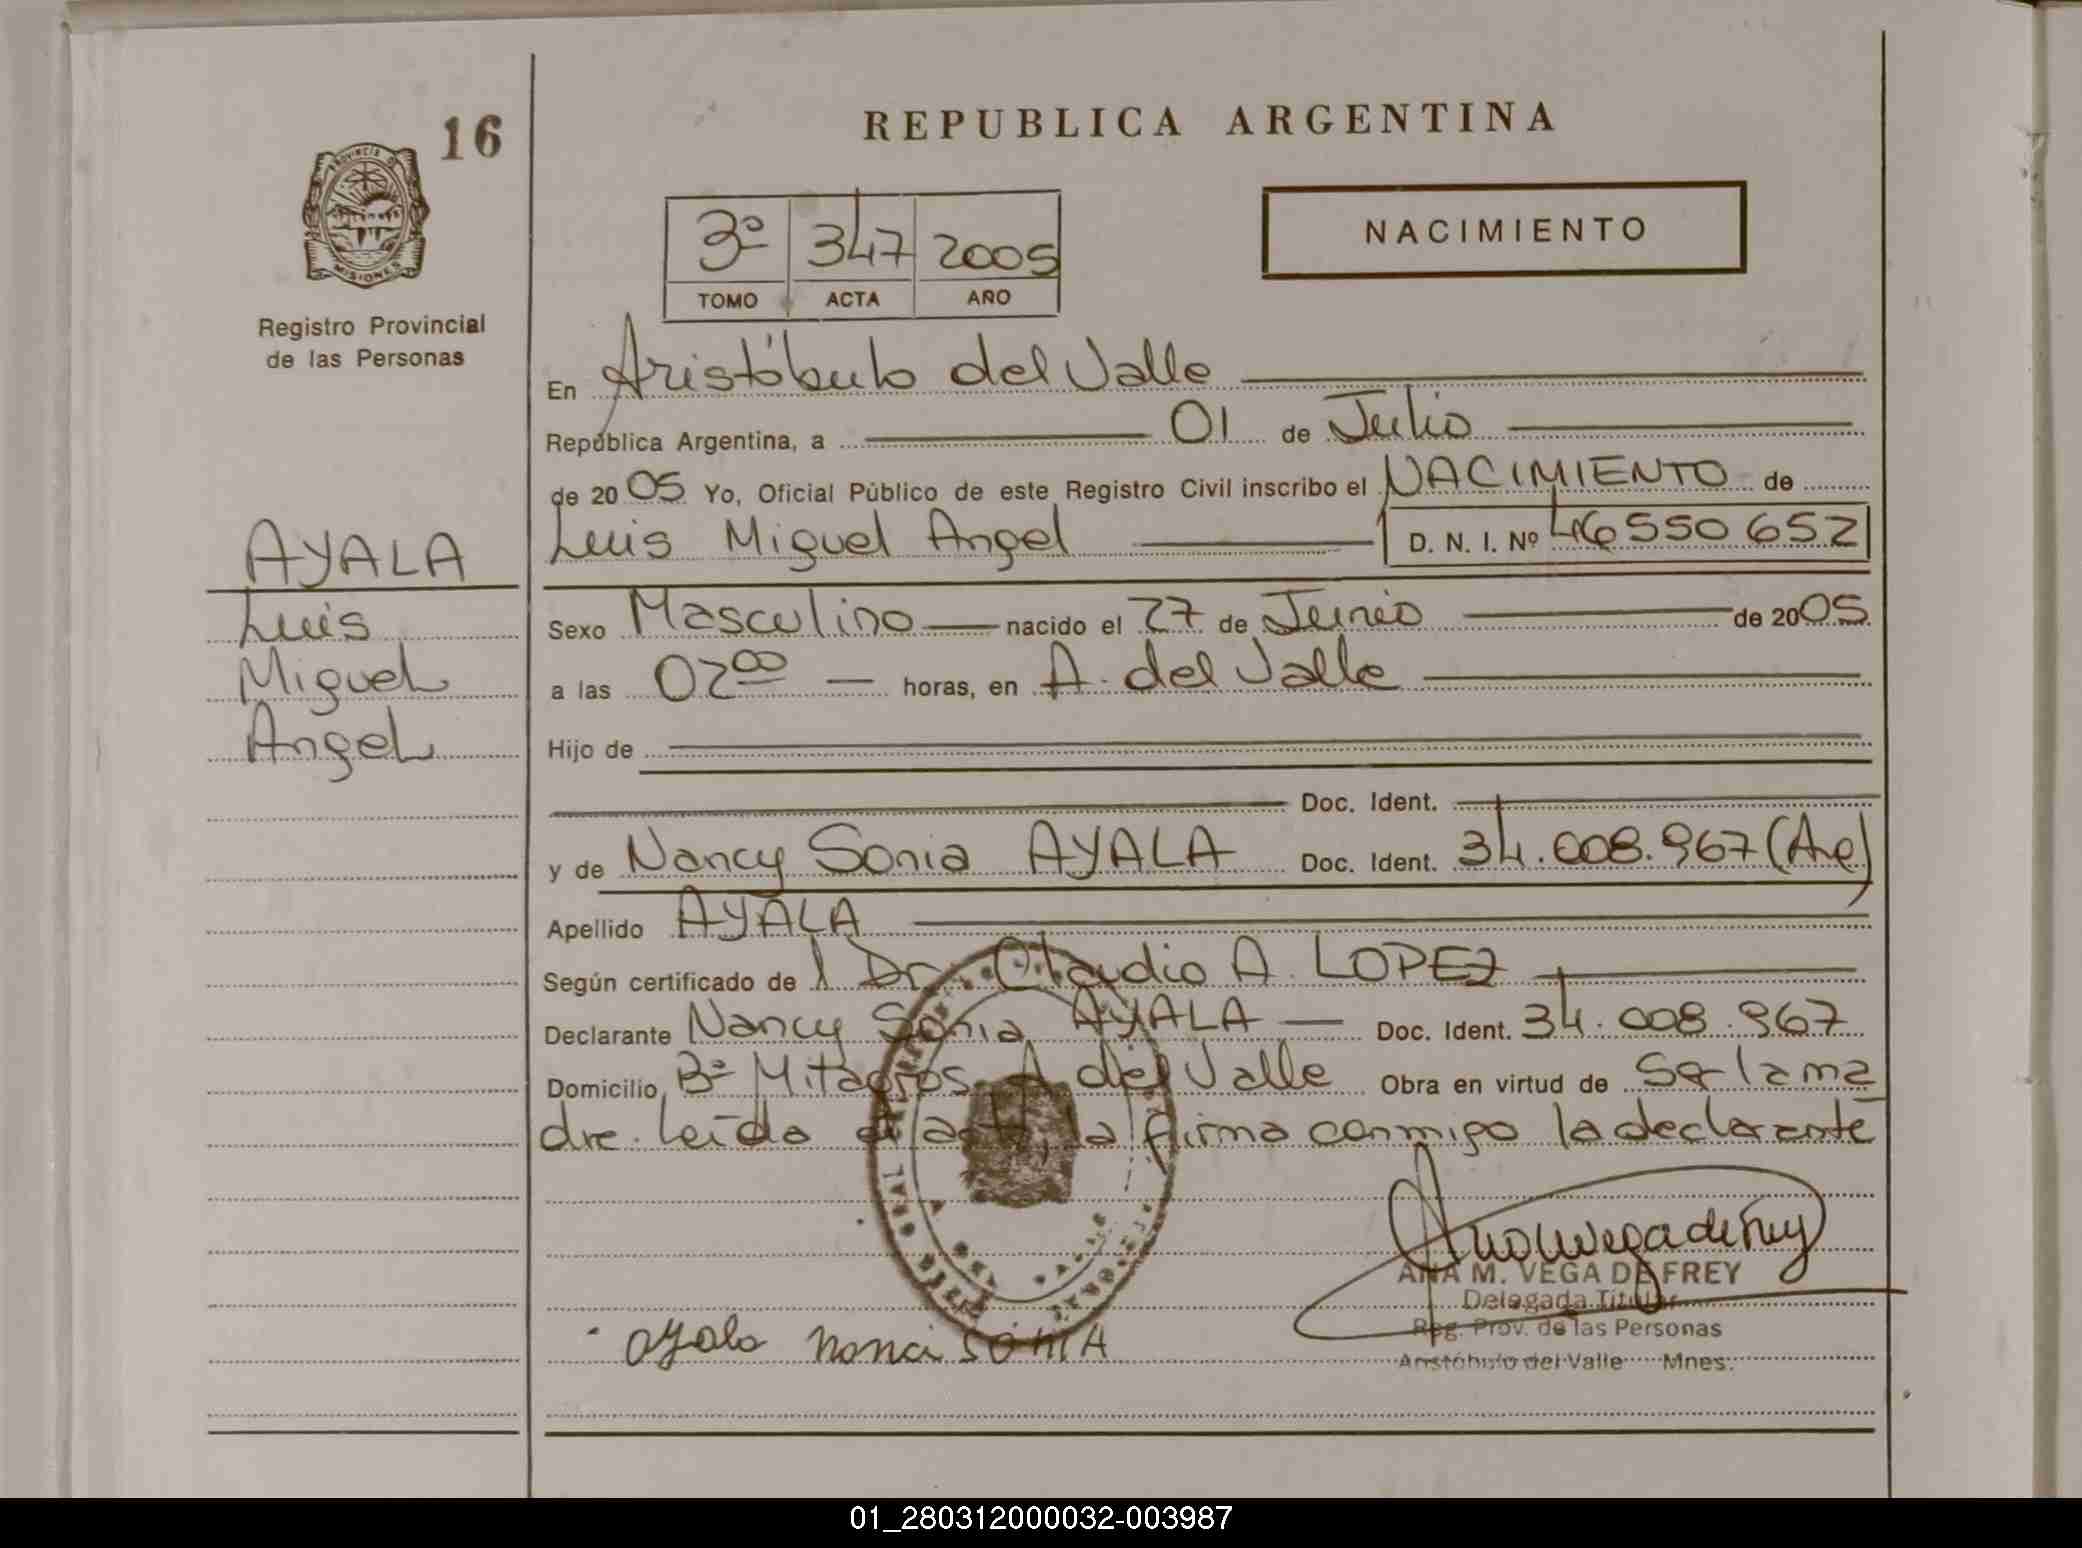 16
REPUBLICA ARGENTINA
PROVINCIA DE
MISIONES
Registro Provincial
de las Personas
3º 347 2005
TOMO ACTA AÑO
NACIMIENTO
En Aristóbulo del Valle
República Argentina, a 01 de Julio
de 2005 Yo, Oficial Público de este Registro Civil inscribo el NACIMIENTO de
Luis Miguel Angel D. N. I. Nº 46550652
AYALA
Luis
Miguel
Angel
Sexo Masculino nacido el 27 de Junio de 2005
a las 02⁰⁰ horas, en A. del Valle
Hijo de
Doc. Ident.
y de Nancy Sonia AYALA Doc. Ident. 34.008.967 (Arg)
Apellido AYALA
Según certificado de l Dr. Claudio A. LOPEZ
Declarante Nancy Sonia AYALA Doc. Ident. 34.008.967
Domicilio Bº Milagros A del Valle Obra en virtud de Ser la ma
dre. Leída el acta, la firma conmigo la declarante
Ana M Vega de Frey
ANA M. VEGA DE FREY
Delegada Titular
Reg. Prov. de las Personas
Aristóbulo del Valle Mnes.
ayala nanci SONIA
01_280312000032-003987